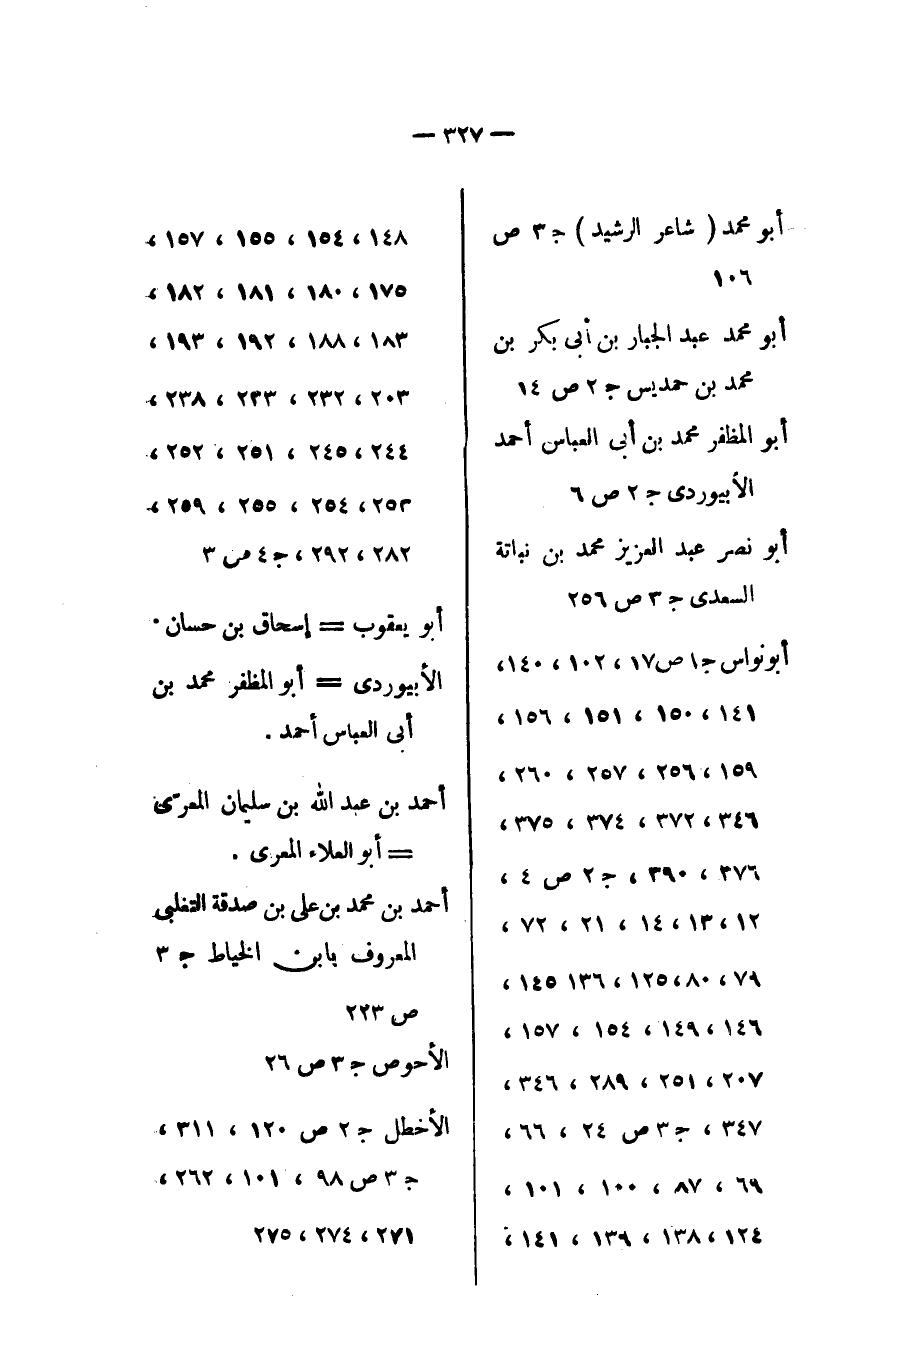 — ٣٢٧ —
أبو محمد ( شاعر الرشيد ) جـ ٣ ص
١٠٦
أبو محمد عبد الجبار بن أبى بكر بن
محمد بن حمديس جـ ٢ ص ١٤
أبو المظفر محمد بن أبى العباس أحمد
الأبيوردى جـ ٢ ص ٦
أبو نصر عبد العزيز محمد بن نباتة
السعدى جـ ٣ ص ٢٥٦
أبو نواس جـ ١ ص ١٧ ، ١٠٢ ، ١٤٠ ،
١٤١ ، ١٥٠ ، ١٥١ ، ١٥٦ ،
١٥٩ ، ٢٥٦ ، ٢٥٧ ، ٢٦٠ ،
٣٤٦ ، ٣٧٢ ، ٣٧٤ ، ٣٧٥ ،
٣٧٦ ، ٣٩٠ ، جـ ٢ ص ٤ ،
١٢ ، ١٣ ، ١٤ ، ٢١ ، ٧٢ ،
٧٩ ، ٨٠ ، ١٢٥ ، ١٣٦ ١٤٥ ،
١٤٦ ، ١٤٩ ، ١٥٤ ، ١٥٧ ،
٢٠٧ ، ٢٥١ ، ٢٨٩ ، ٣٤٦ ،
٣٤٧ ، جـ ٣ ص ٢٤ ، ٦٦ ،
٦٩ ، ٨٧ ، ١٠٠ ، ١٠١ ،
١٢٤ ، ١٣٨ ، ١٣٩ ، ١٤١ ،
١٤٨ ، ١٥٤ ، ١٥٥ ، ١٥٧ ،
١٧٥ ، ١٨٠ ، ١٨١ ، ١٨٢ ،
١٨٣ ، ١٨٨ ، ١٩٢ ، ١٩٣ ،
٢٠٣ ، ٢٣٢ ، ٢٣٣ ، ٢٣٨ ،
٢٤٤ ، ٢٤٥ ، ٢٥١ ، ٢٥٢ ،
٢٥٣ ، ٢٥٤ ، ٢٥٥ ، ٢٥٩ ،
٢٨٢ ، ٢٩٢ ، جـ ٤ ص ٣
أبو يعقوب = إسحاق بن حسان .
الأبيوردى = أبو المظفر محمد بن
أبى العباس أحمد .
أحمد بن عبد الله بن سليمان المعرّى
= أبو العلاء المعرى .
أحمد بن محمد بن على بن صدقة التغلبى
المعروف بابن الخياط جـ ٣
ص ٢٢٣
الأحوص جـ ٣ ص ٢٦
الأخطل جـ ٢ ص ١٢٠ ، ٣١١ ،
جـ ٣ ص ٩٨ ، ١٠١ ، ٢٦٢ ،
٢٧١ ، ٢٧٤ ، ٢٧٥